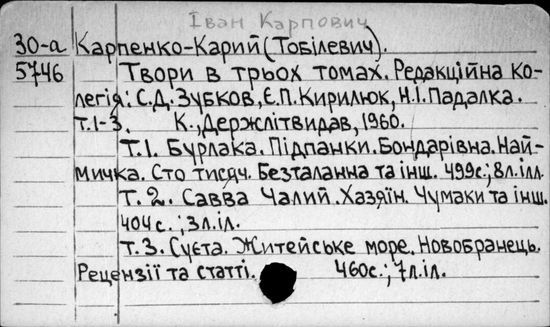 Іван Карпович
30-а Карпенко-Карий (Тобілевич).
5746 Твори в трьох томах. Редакційна ко-
легія: С.Д. Зубков, Є.П. Кирилюк, Н.І. Падалка.
т.1-3. К., Держлітвидав, 1960.
Т.1. Бурлака. Підпанки. Бондарівна. Най-
мичка. Сто тисяч. Безталанна та інш. 499с.; 8л.ілл.
Т. 2. Савва Чалий. Хазяїн. Чумаки та інш.
404с.; 3л.іл.
Т. 3. Суєта. Житейське море. Новобранець.
Рецензії та статті. 460с.; 7л.іл.